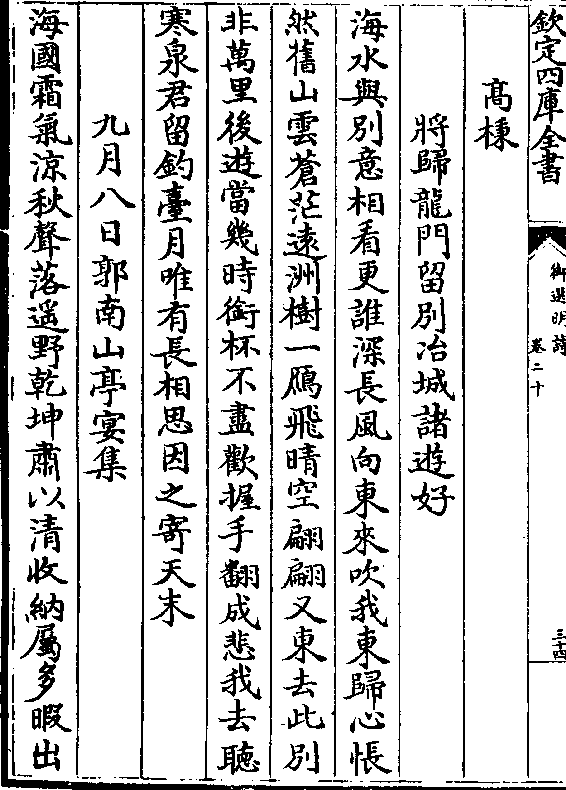 欽定四庫全書
御選明詩
卷二十
三十四
高棅
將歸龍門留別冶城諸遊好
海水與別意相看更誰深長風向東來吹我東歸心悵
然舊山雲蒼茫遠洲樹一鴈飛晴空翩翩又東去此別
非萬里後遊當幾時銜杯不盡歡握手翻成悲我去聽
寒泉君留釣臺月唯有長相思因之寄天末
九月八日郭南山亭宴集
海國霜氣涼秋聲落遥野乾坤肅以清收納屬多暇出